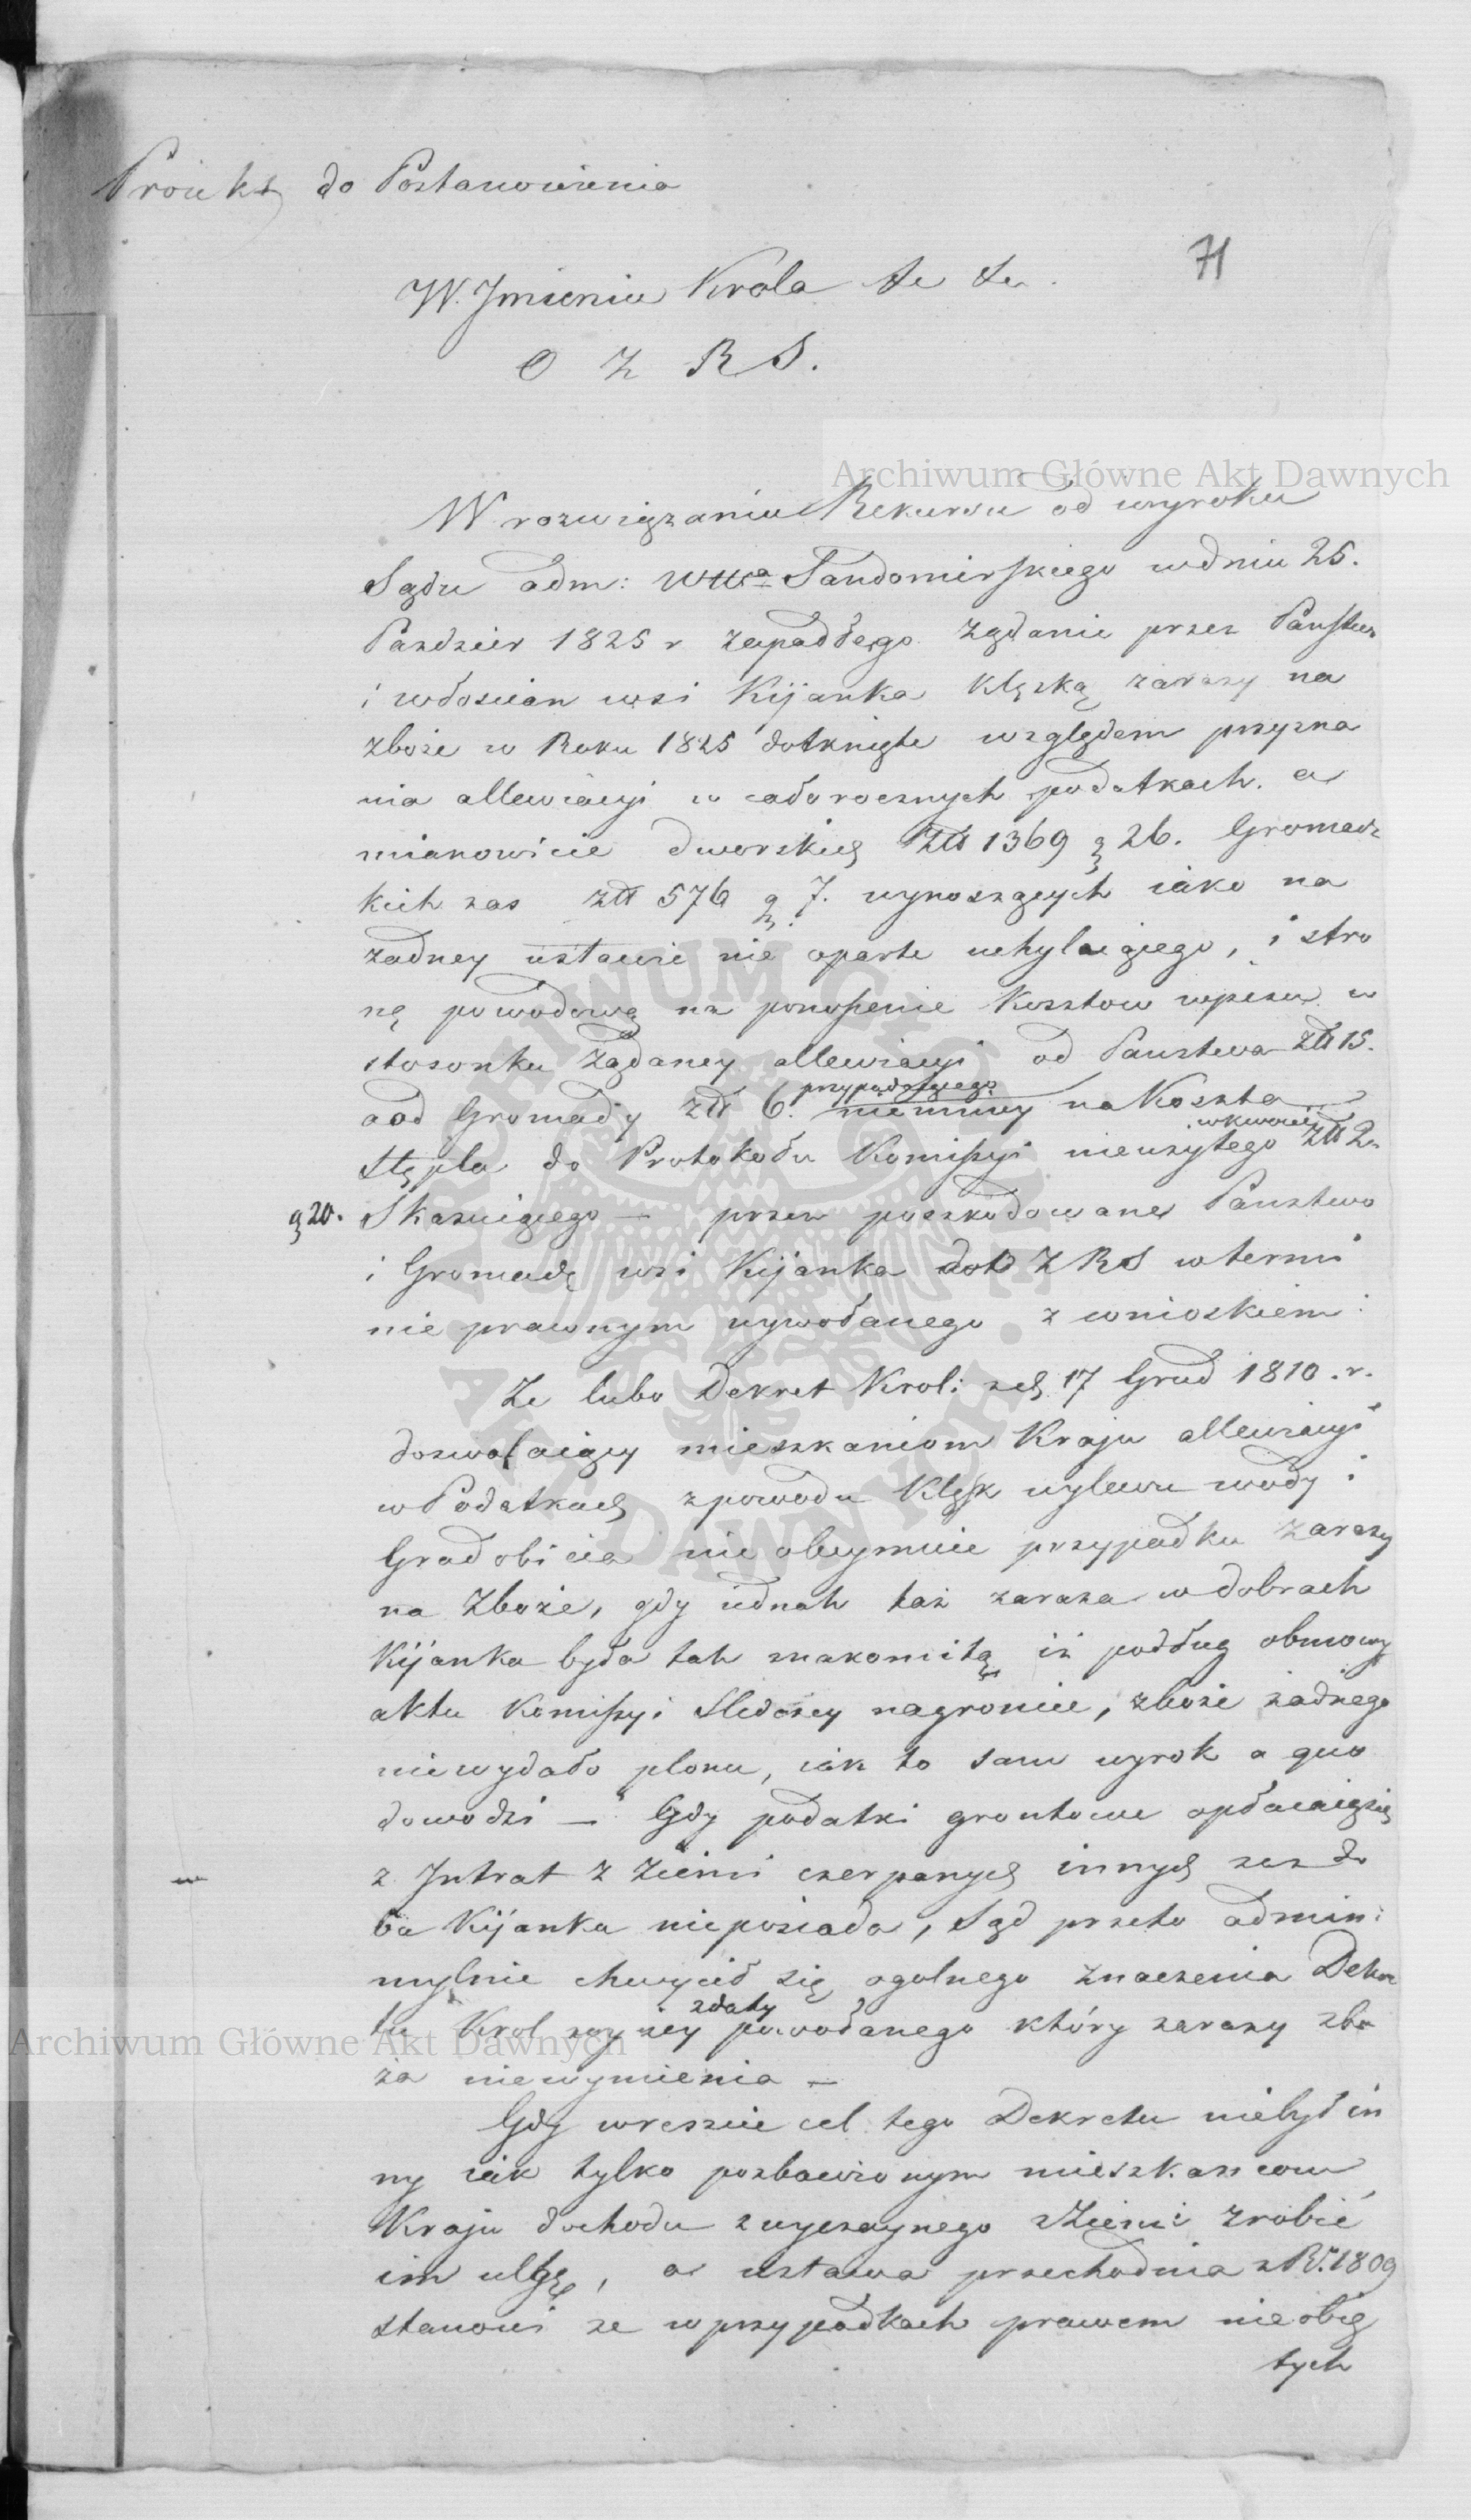 Proiekt do Postanowienia
71
W Jmieniu Krola &c &c.
O Z R S.
Archiwum Główne Akt Dawnych
W rozwiązaniu Rekursu od wyroku
Sądu adm: Wttwa Sandomirskiego w dniu 25.
Pazdzier 1825 r zapadłego żądanie przez Panstwo
i włoscian wsi Kijanka klęską zarazy na
zboże w Roku 1825 dotknięte względem przyzna
nia allewiacyi w całorocznych podatkach. a
mianowicie dworskich Złł 1369 g 26. Gromadz
kich zas złł 576 g 7. wynoszących iako na
żadney ustawie nie oparte uchylaiącego, i stro
nę powodową na ponoszenie kosztow wpisu w
stosunku żądaney allewiacyi od Panstwa złł 15.
a od Gromady złł 6. przypadaiącego niemniey na Koszta
Stępla do Protokołu Komissyi nieużytego w kwocie złł 2.
g 20. Skazuiącego — przez poszkodowane Panstwo
i Gromadę wsi Kijanka do O Z R S w termi
nie prawnym wywołanego z wnioskiem:
Ze lubo Dekret Krol: z d. 17 Grud 1810. r.
dozwalaiący mieszkaniom Kraju allewiacyi
w Podatkach z powodu Klęsk wylewu wody i
Gradobicia nie obeymuie przypadku zarazy
na zboże, gdy iednak taż zaraza w dobrach
Kijanka była tak znakomitą iż podług osnowy
aktu Komissyi Sledczey na gruncie, zboże żadnego
nie wydało plonu, iak to sam wyrok a quo
dowodzi — Gdy podatki gruntowe opłacaią się
z Jntrat z ziemi czerpanych innych zas do
ba Kijanka nie posiada, Sąd przeto admin:
mylnie chwycił się ogolnego znaczenia Dekre
tu Krol wyżey z daty powołanego który zarazy zbo
ża niewymienia —
Archiwum Główne Akt Dawnych
Gdy wreszcie cel tego Dekretu niebył in
ny iak tylko pozbawionym mieszkancom
Kraju dochodu zwyczaynego z Ziemi zrobić
im ulgę, a ustawa przechodnia z R. 1809
stanowi ze w przypadkach prawem nie obię
tych